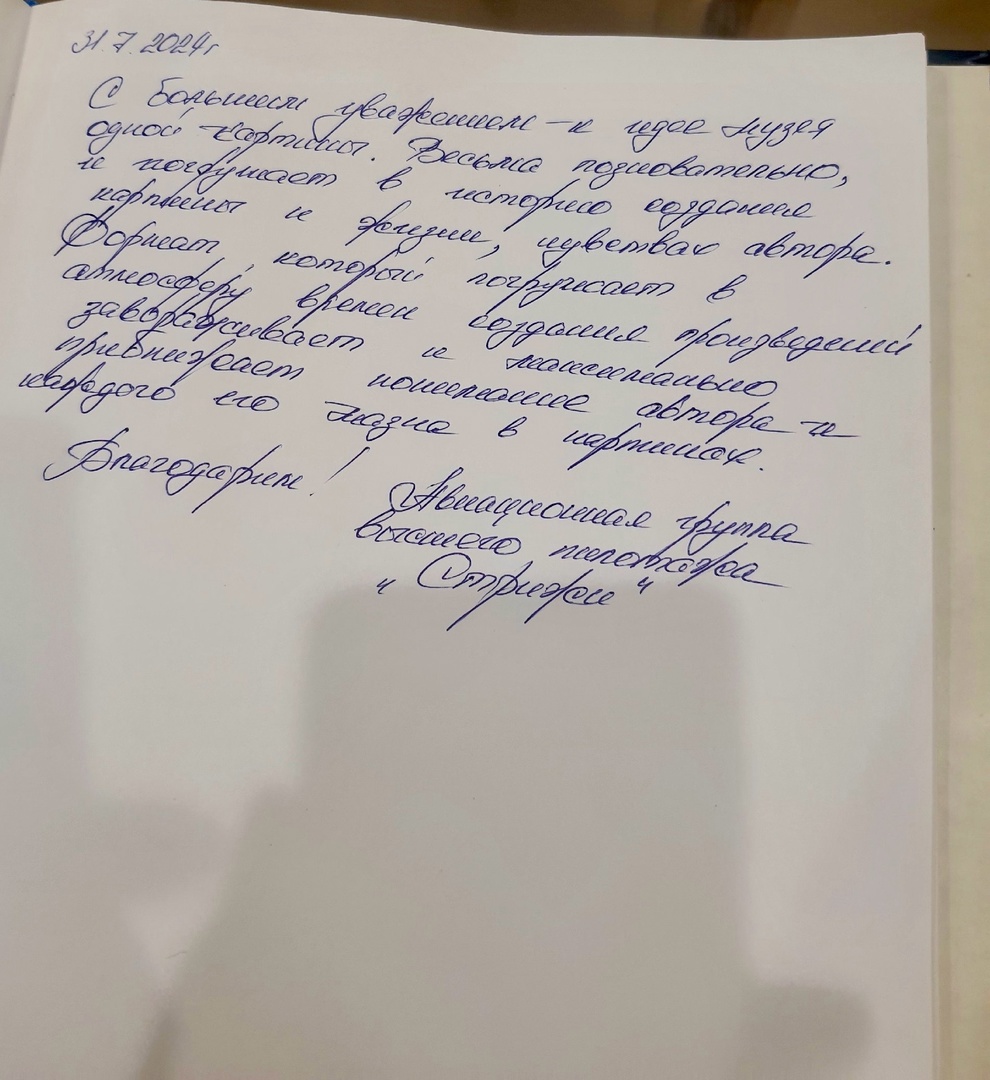 31.7.2024г
С большим уважением к идее музея
одной картины. Весьма позновательно,
и погружает в историю создания
картины и жизни, чувствах автора.
Формат, который погружает в
атмосферу времен создания произведений
завораживает и максимально
приближает понимание автора и
каждого его мазка в картинах.
Благодарим!
Авиационная группа
высшего пилотажа
"Стрижи"